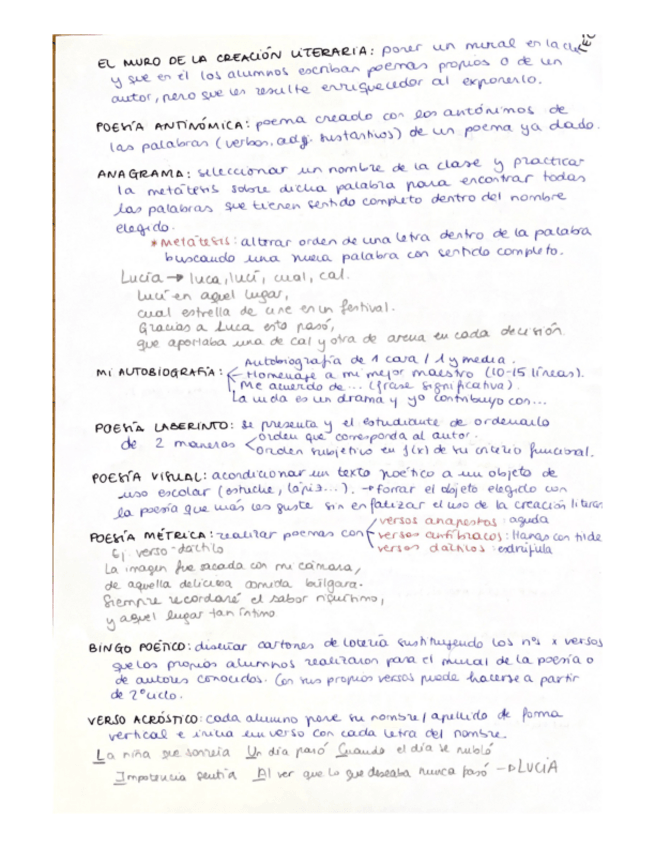 EL MURO DE LA CREACIÓN LITERARIA: poner un mural en la
y que en él los alumnos escriban poemas propios o de un
autor, pero que les resulte enriquecedor al exponerlo.
POESÍA ANTINÓMICA: poema creado con los antónimos de
las palabras (verbos, adj. sustantivos) de un poema ya dado.
ANAGRAMA: seleccionar un nombre de la clase y practicar
la metátesis sobre dicha palabra para encontrar todas
las palabras que tienen sentido completo dentro del nombre
elegido.
*metátesis: alterar orden de una letra dentro de la palabra
buscando una nueva palabra con sentido completo.
Lucía → luca, lucí, cual, cal.
Lucí en aquel lugar,
cual estrella de cine en un festival.
Gracias a Luca esto pasó,
que aportaba una de cal y otra de arena en cada decisión.
MI AUTOBIOGRAFÍA: Autobiografía de 1 cara / 1 y media.
Homenaje a mi mejor maestro (10-15 líneas).
Me acuerdo de... (frase significativa).
La vida es un drama y yo contribuyo con...
POESÍA LABERINTO: se presenta y el estudiante de ordenarlo
de 2 maneras orden que corresponda al autor.
orden subjetivo en f(x) de su criterio funcional.
POESÍA VISUAL: acondicionar un texto poético a un objeto de
uso escolar (estuche, lápiz...). → forrar el objeto elegido con
la poesía que más les guste sin enfatizar el uso de la creación
POESÍA MÉTRICA: realizar poemas con versos anapestos: aguda
versos anfíbracos: llanas con tilde
versos dáctilos: esdrújula
Ej. verso-dáctilo
La imagen fue sacada con mi cámara,
de aquella deliciosa comida búlgara.
Siempre recordaré el sabor riquísimo,
y aquel lugar tan íntimo.
BINGO POÉTICO: diseñar cartones de lotería sustituyendo los nos x versos
que los propios alumnos realizaron para el mural de la poesía o
de autores conocidos. Con sus propios versos puede hacerse a partir
de 2º ciclo.
VERSO ACRÓSTICO: cada alumno pone su nombre/apellido de forma
vertical e inicia un verso con cada letra del nombre.
La niña que sonreía Un día pasó Cuando el día se nubló
Impotencia sentía Al ver que lo que deseaba nunca pasó → LUCIA